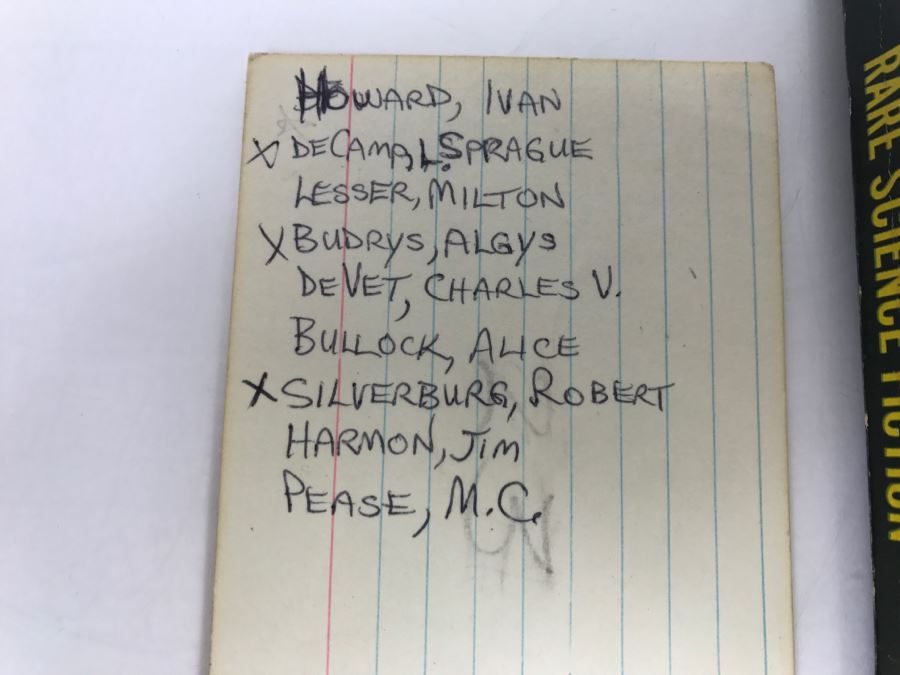 HOWARD, IVAN
X DECAMP, L. SPRAGUE
LESSER, MILTON
X BUDRYS, ALGYS
DEVET, CHARLES V.
BULLOCK, ALICE
X SILVERBURG, ROBERT
HARMON, JIM
PEASE, M.C.
RARE SCIENCE FICTION